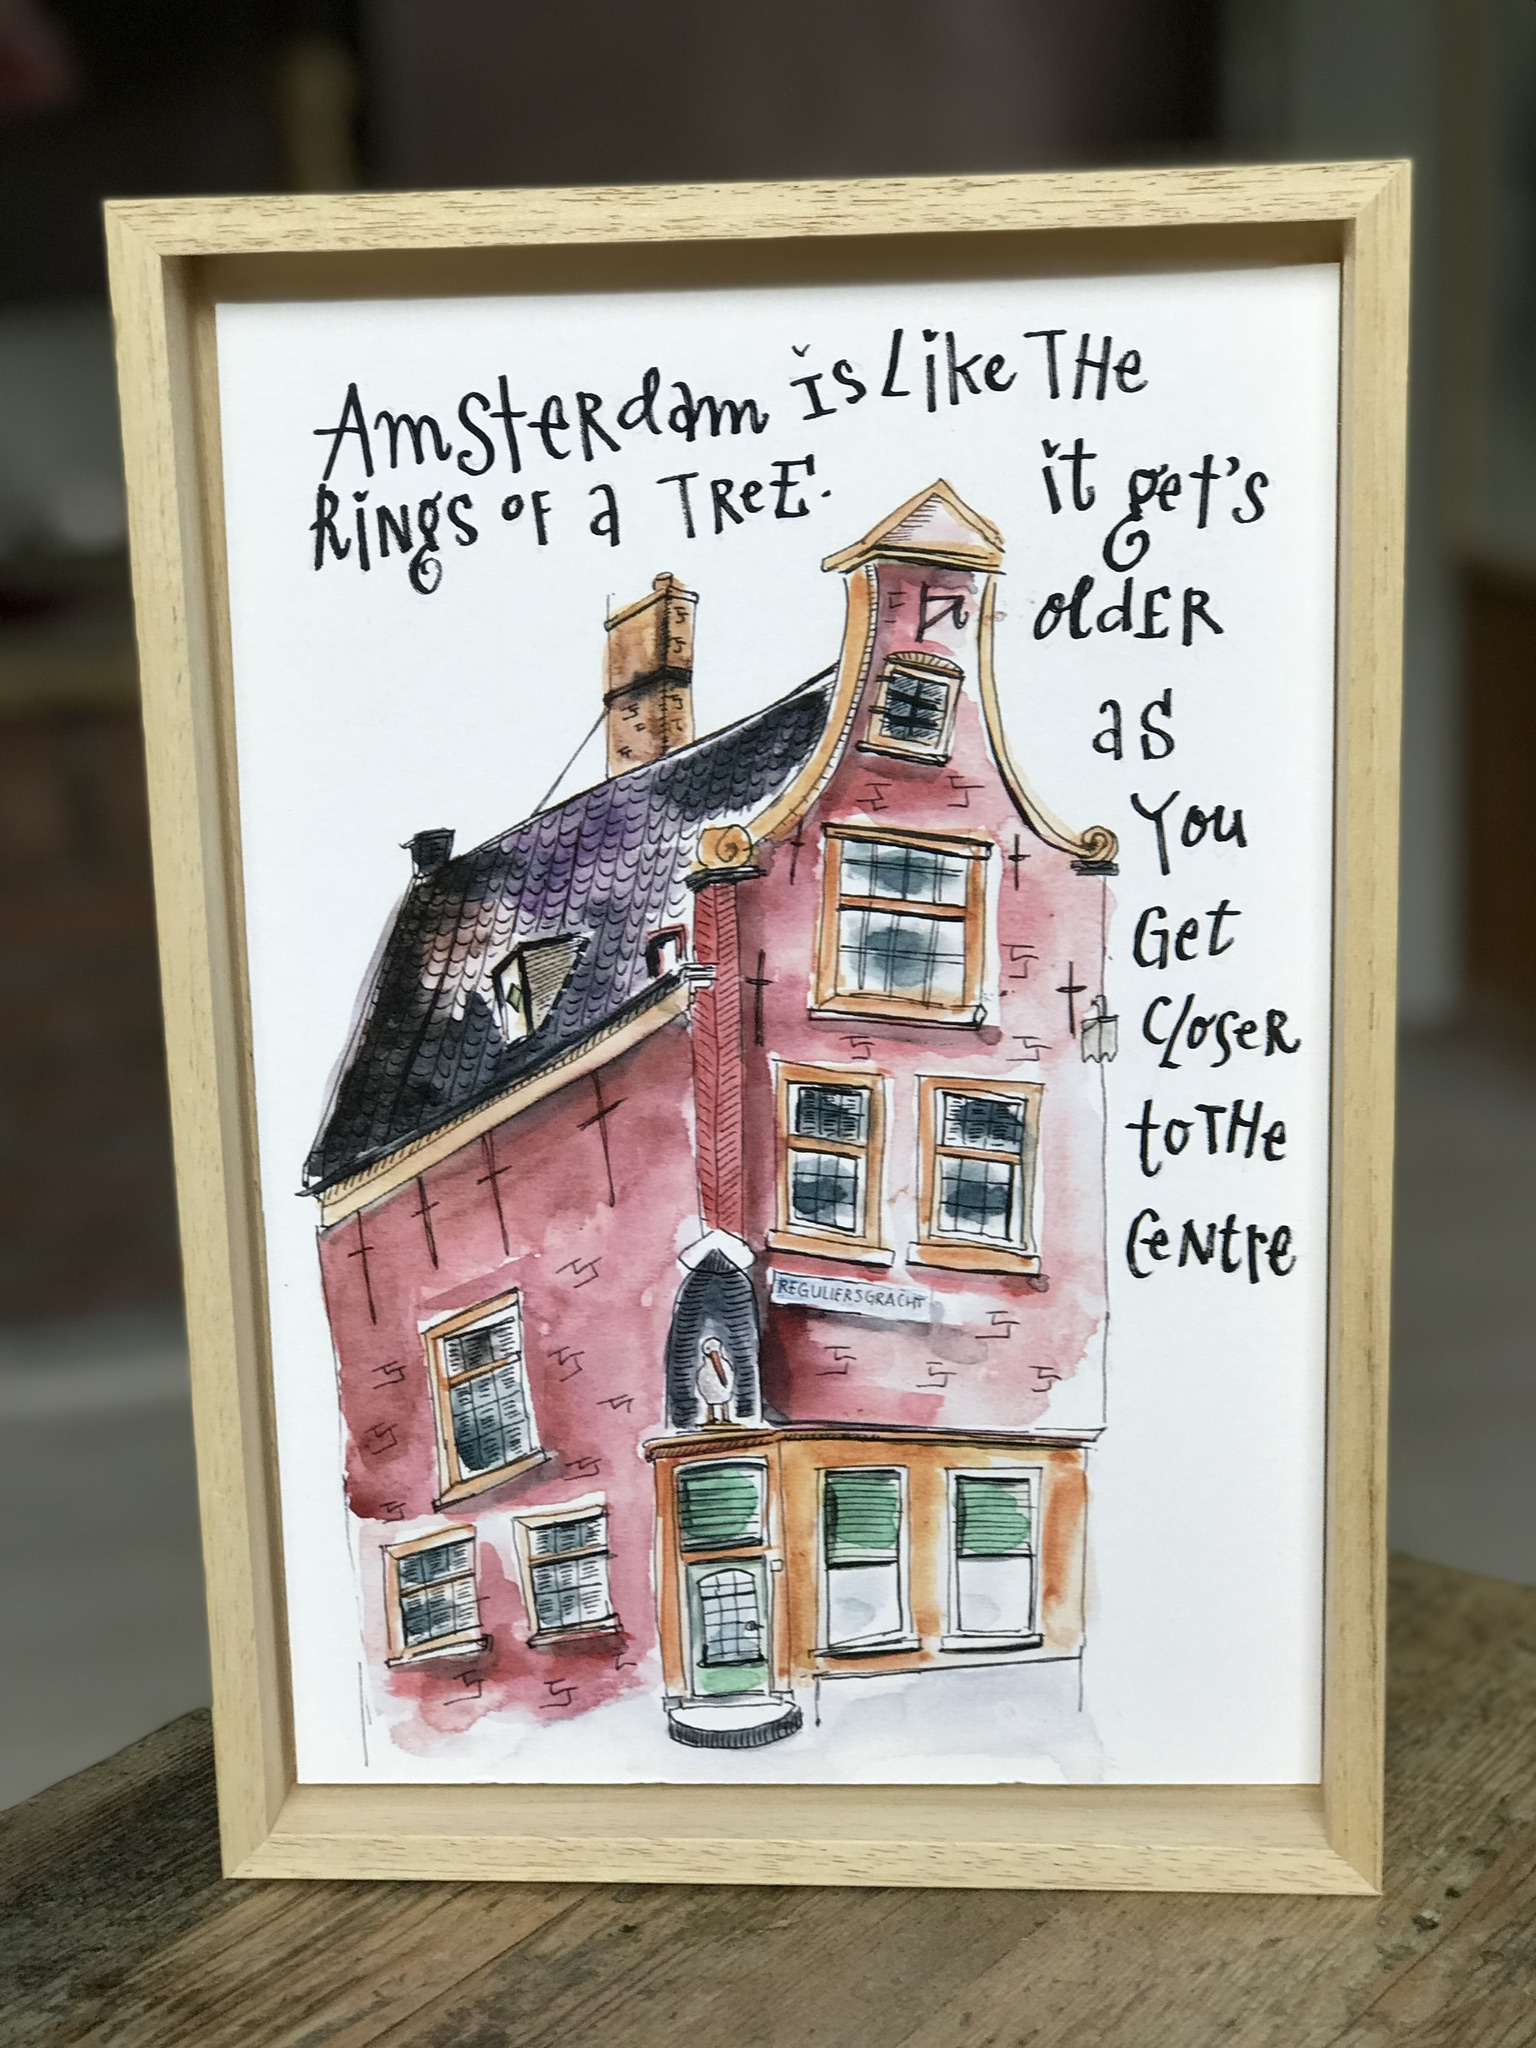 Amsterdam is like the
rings of a tree.
it get's
older
as
you
get
closer
to the
centre
REGULIERSGRACHT